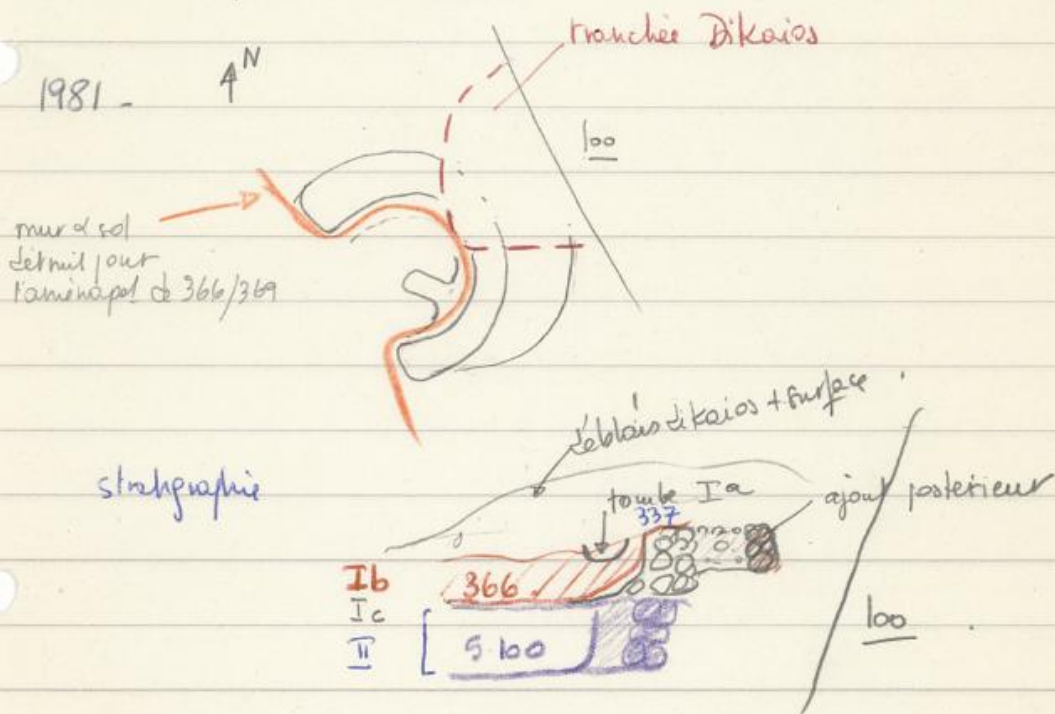 tranchée Dikaios
1981 - N
100
mur & sol
détruit pour
l'aménagt de 366/369
déblais dikaios + surface
stratigraphie
tombe Ia
337
ajout postérieur
Ib 366
Ic
II S 100
100